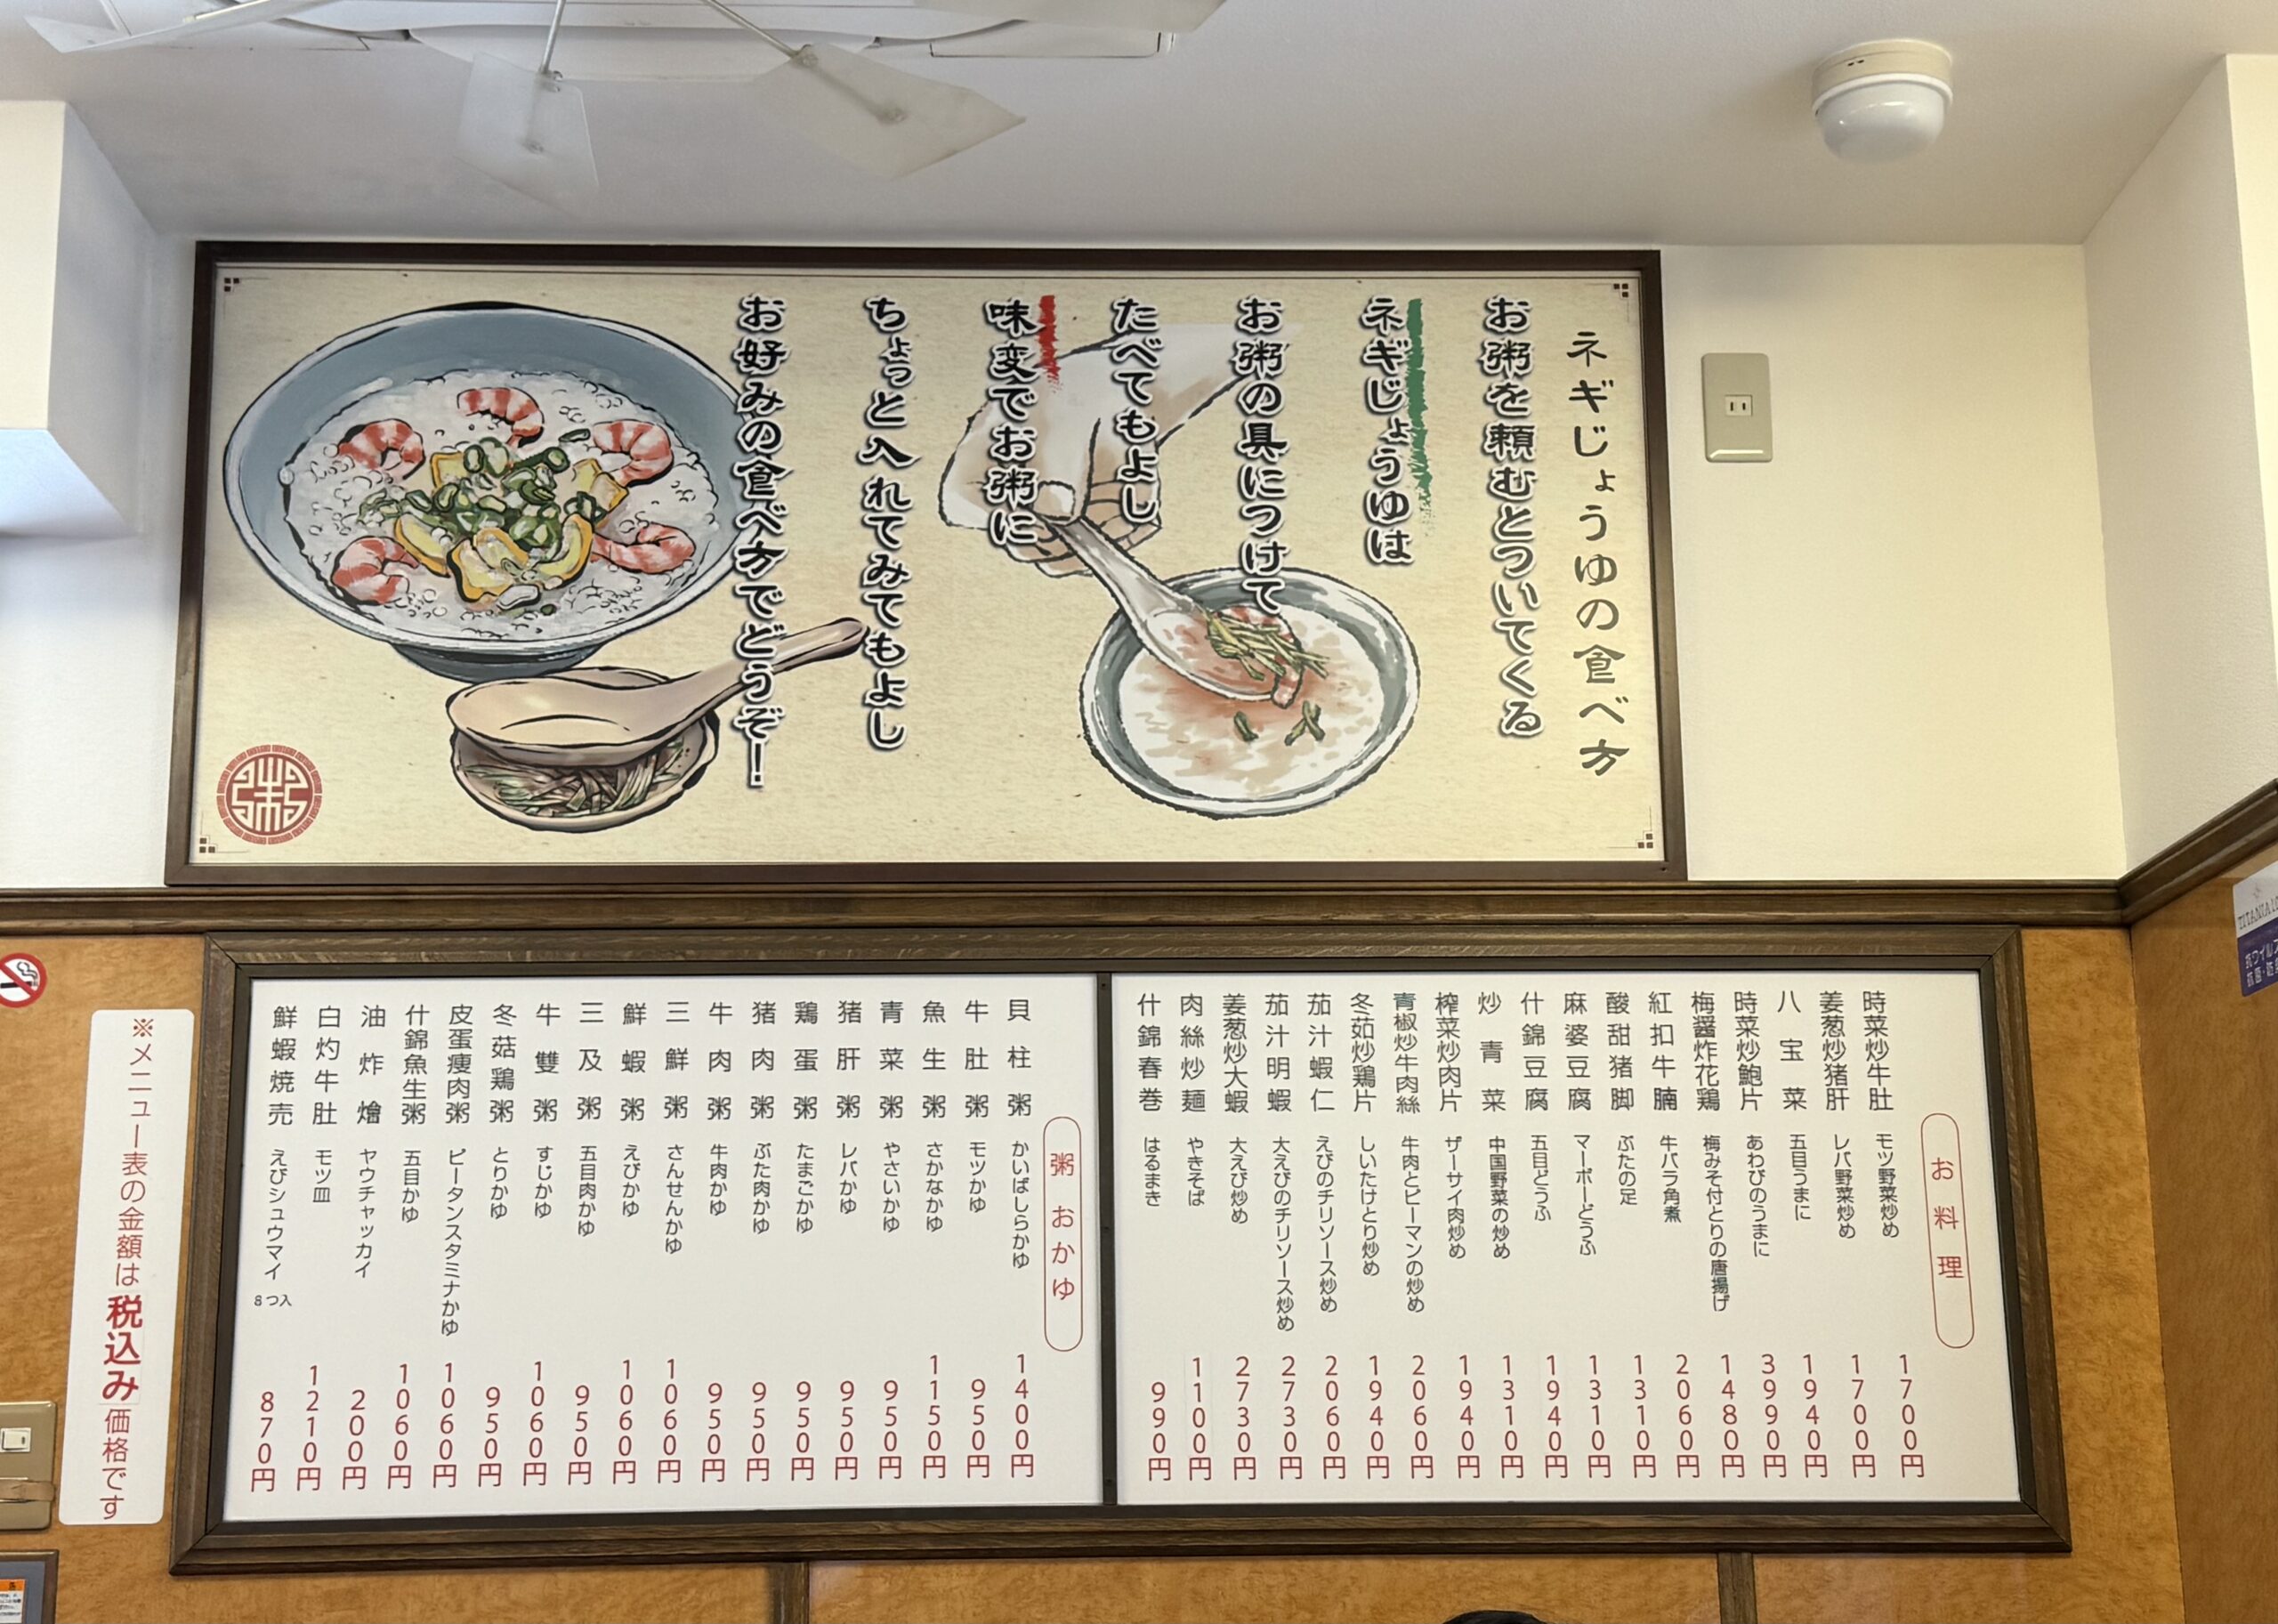 ネギじょうゆの食べ方
お粥を頼むとついてくる
ネギじょうゆは
お粥の具につけて
たべてもよし
味変でお粥に
ちょっと入れてみてもよし
お好みの食べ方でどうぞ！
お料理
時菜炒牛肚 モツ野菜炒め 1700円
姜葱炒猪肝 レバ野菜炒め 1700円
八宝菜 五目うまに 1940円
時菜炒鮑片 あわびのうまに 3990円
梅醤炸花鶏 梅みそ付とりの唐揚げ 1480円
紅扣牛腩 牛バラ角煮 2060円
酸甜猪脚 ぶたの足 1310円
麻婆豆腐 マーボーどうふ 1310円
什錦豆腐 五目どうふ 1940円
炒青菜 中国野菜の炒め 1310円
榨菜炒肉片 ザーサイ肉炒め 1940円
青椒炒牛肉絲 牛肉とピーマンの炒め 2060円
冬茹炒鶏片 しいたけとり炒め 1940円
茄汁蝦仁 えびのチリソース炒め 2060円
茄汁明蝦 大えびのチリソース炒め 2730円
姜葱炒大蝦 大えび炒め 2730円
肉絲炒麺 やきそば 1100円
什錦春巻 はるまき 990円
粥 おかゆ
貝柱粥 かいばしらかゆ 1400円
牛肚粥 モツかゆ 950円
魚生粥 さかなかゆ 1150円
青菜粥 やさいかゆ 950円
猪肝粥 レバかゆ 950円
鶏蛋粥 たまごかゆ 950円
猪肉粥 ぶた肉かゆ 950円
牛肉粥 牛肉かゆ 950円
三鮮粥 さんせんかゆ 1060円
鮮蝦粥 えびかゆ 1060円
三及粥 五目肉かゆ 950円
牛雙粥 すじかゆ 1060円
冬菇鶏粥 とりかゆ 950円
皮蛋痩肉粥 ピータンスタミナかゆ 1060円
什錦魚生粥 五目かゆ 1060円
油炸燴 ヤウチャッカイ 200円
白灼牛肚 モツ皿 1210円
鮮蝦焼売 えびシュウマイ 8つ入 870円
※メニュー表の金額は税込み価格です